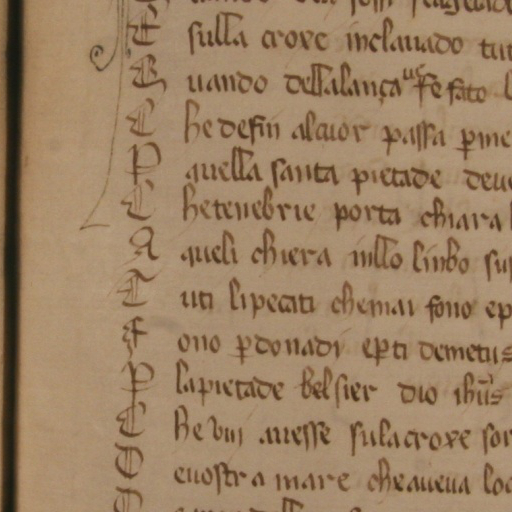 E sulla croxe inclauado tut
Quando dellalança ue fe fato l
Che defin alcuor passa per me
Per quella santa pietade deue
Che tenebrie porta chiara l
A queli chiera inllo linbo su
Tuti lipecati chemai fono ep
Fono perdonadi eperti demetus
Per lapietade bel sier dio ihus
Che vui auesse sula croxe sor
De uostra mare che aueua lo